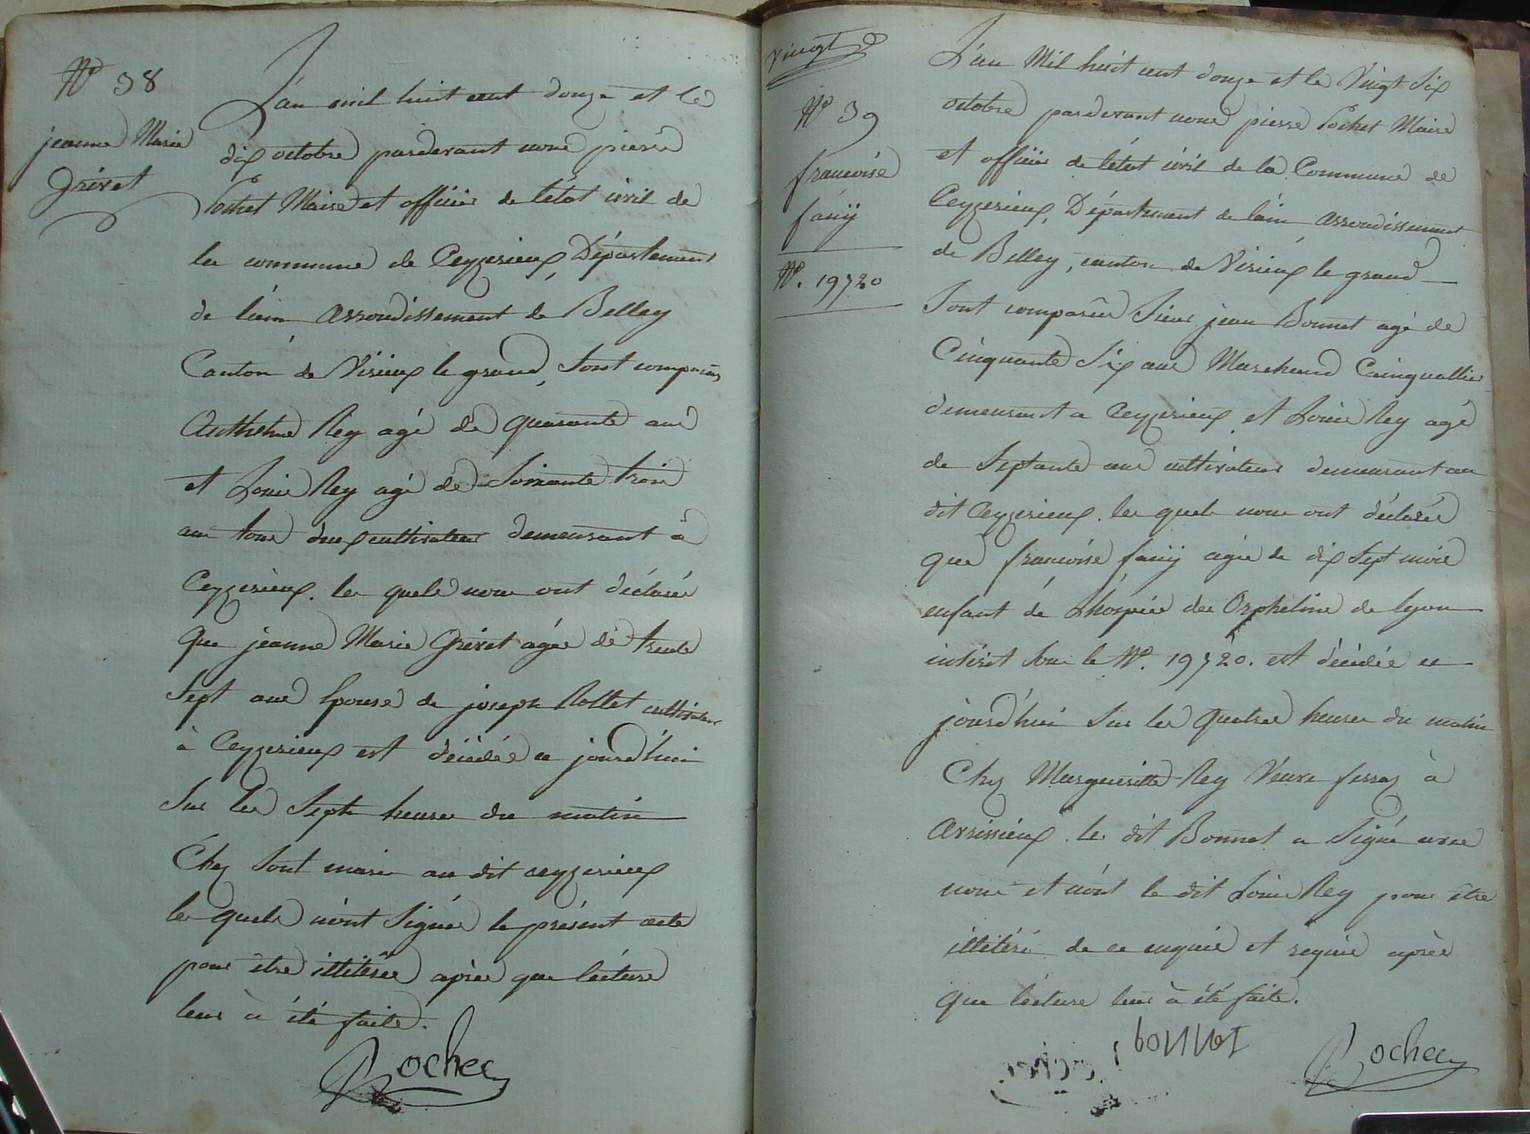 N° 38
jeanne Marie
Grivet
L'an mil huit cent douze et le
dix octobre pardevant nous pierre
Pochet Maire et officier de létat civil de
la commune de Ceyzerieux, Département
de l'ain arrondissement de Belley
Canton de Virieux le grand, Sont comparus
Anthelme Rey agé de quarante ans
et Louis Rey agé de Soixante trois
ans tous deux cultivateur demeurant à
Ceyzerieux. les quels nous ont déclarés
que jeanne Marie Grivet agée de trente
Sept ans Epouse de joseph Rollet cultivateur
à Ceyzerieux est décédée ce jourd'hui
Sur les Sept heures du matin
Chez Sont mari au dit ceyzerieux
les quels n'ont Signés le présent acte
pour être illiterés après que lécture
leur à été faite.
Pochet
vingt
N° 39
francoise
fanÿ
N°. 19720
L'an Mil huit cent douze et le Vingt Six
octobre pardevant nous pierre Pochet Maire
et officier de létat civil de la Commune de
Ceyzerieux, Département de lain arrondissement
de Belley, canton de Virieux le grand
Sont comparûs Sieur jean Bonnet agé de
Cinquante Six ans Marchand Cainquallier
demeurant a Ceyzerieux et Louis Rey agé
de Septante ans cultivateur demeurant au
dit Ceyzerieux. les quels nous ont déclarés
que francoise fanÿ agée de dix Sept mois
enfant de L'hospice des Orphelins de lyon
inscrit Sous le N°. 19720. est décédée ce
jourd'hui Sur les Quatres heures du matin
Chez Margueritte Rey Veuve ferraz à
Avrissieux. le dit Bonnet a Signé avec
nous et n'ont le dit Louis Rey pour être
illitéré de ce enquis et requis après
que lécture leur à été faite.
bonnet
Pochet